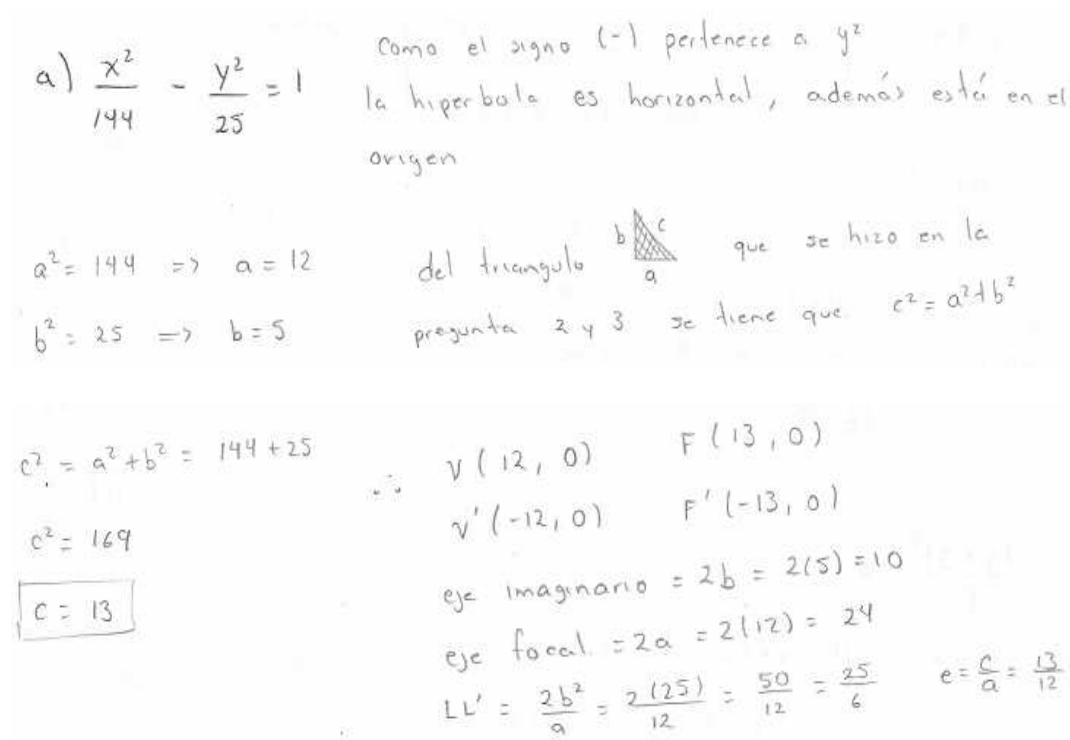 a) x²/144 - y²/25 = 1
Como el signo (-) pertenece a y²
la hiperbola es horizontal, además está en el
origen
a² = 144 => a = 12
b² = 25 => b = 5
del triangulo b c a que se hizo en la
pregunta 2 y 3 se tiene que c² = a² + b²
c² = a² + b² = 144 + 25
c² = 169
c = 13
∴ V (12, 0) F (13, 0)
V' (-12, 0) F' (-13, 0)
eje imaginario = 2b = 2(5) = 10
eje focal = 2a = 2(12) = 24
LL' = 2b²/a = 2(25)/12 = 50/12 = 25/6 e = c/a = 13/12